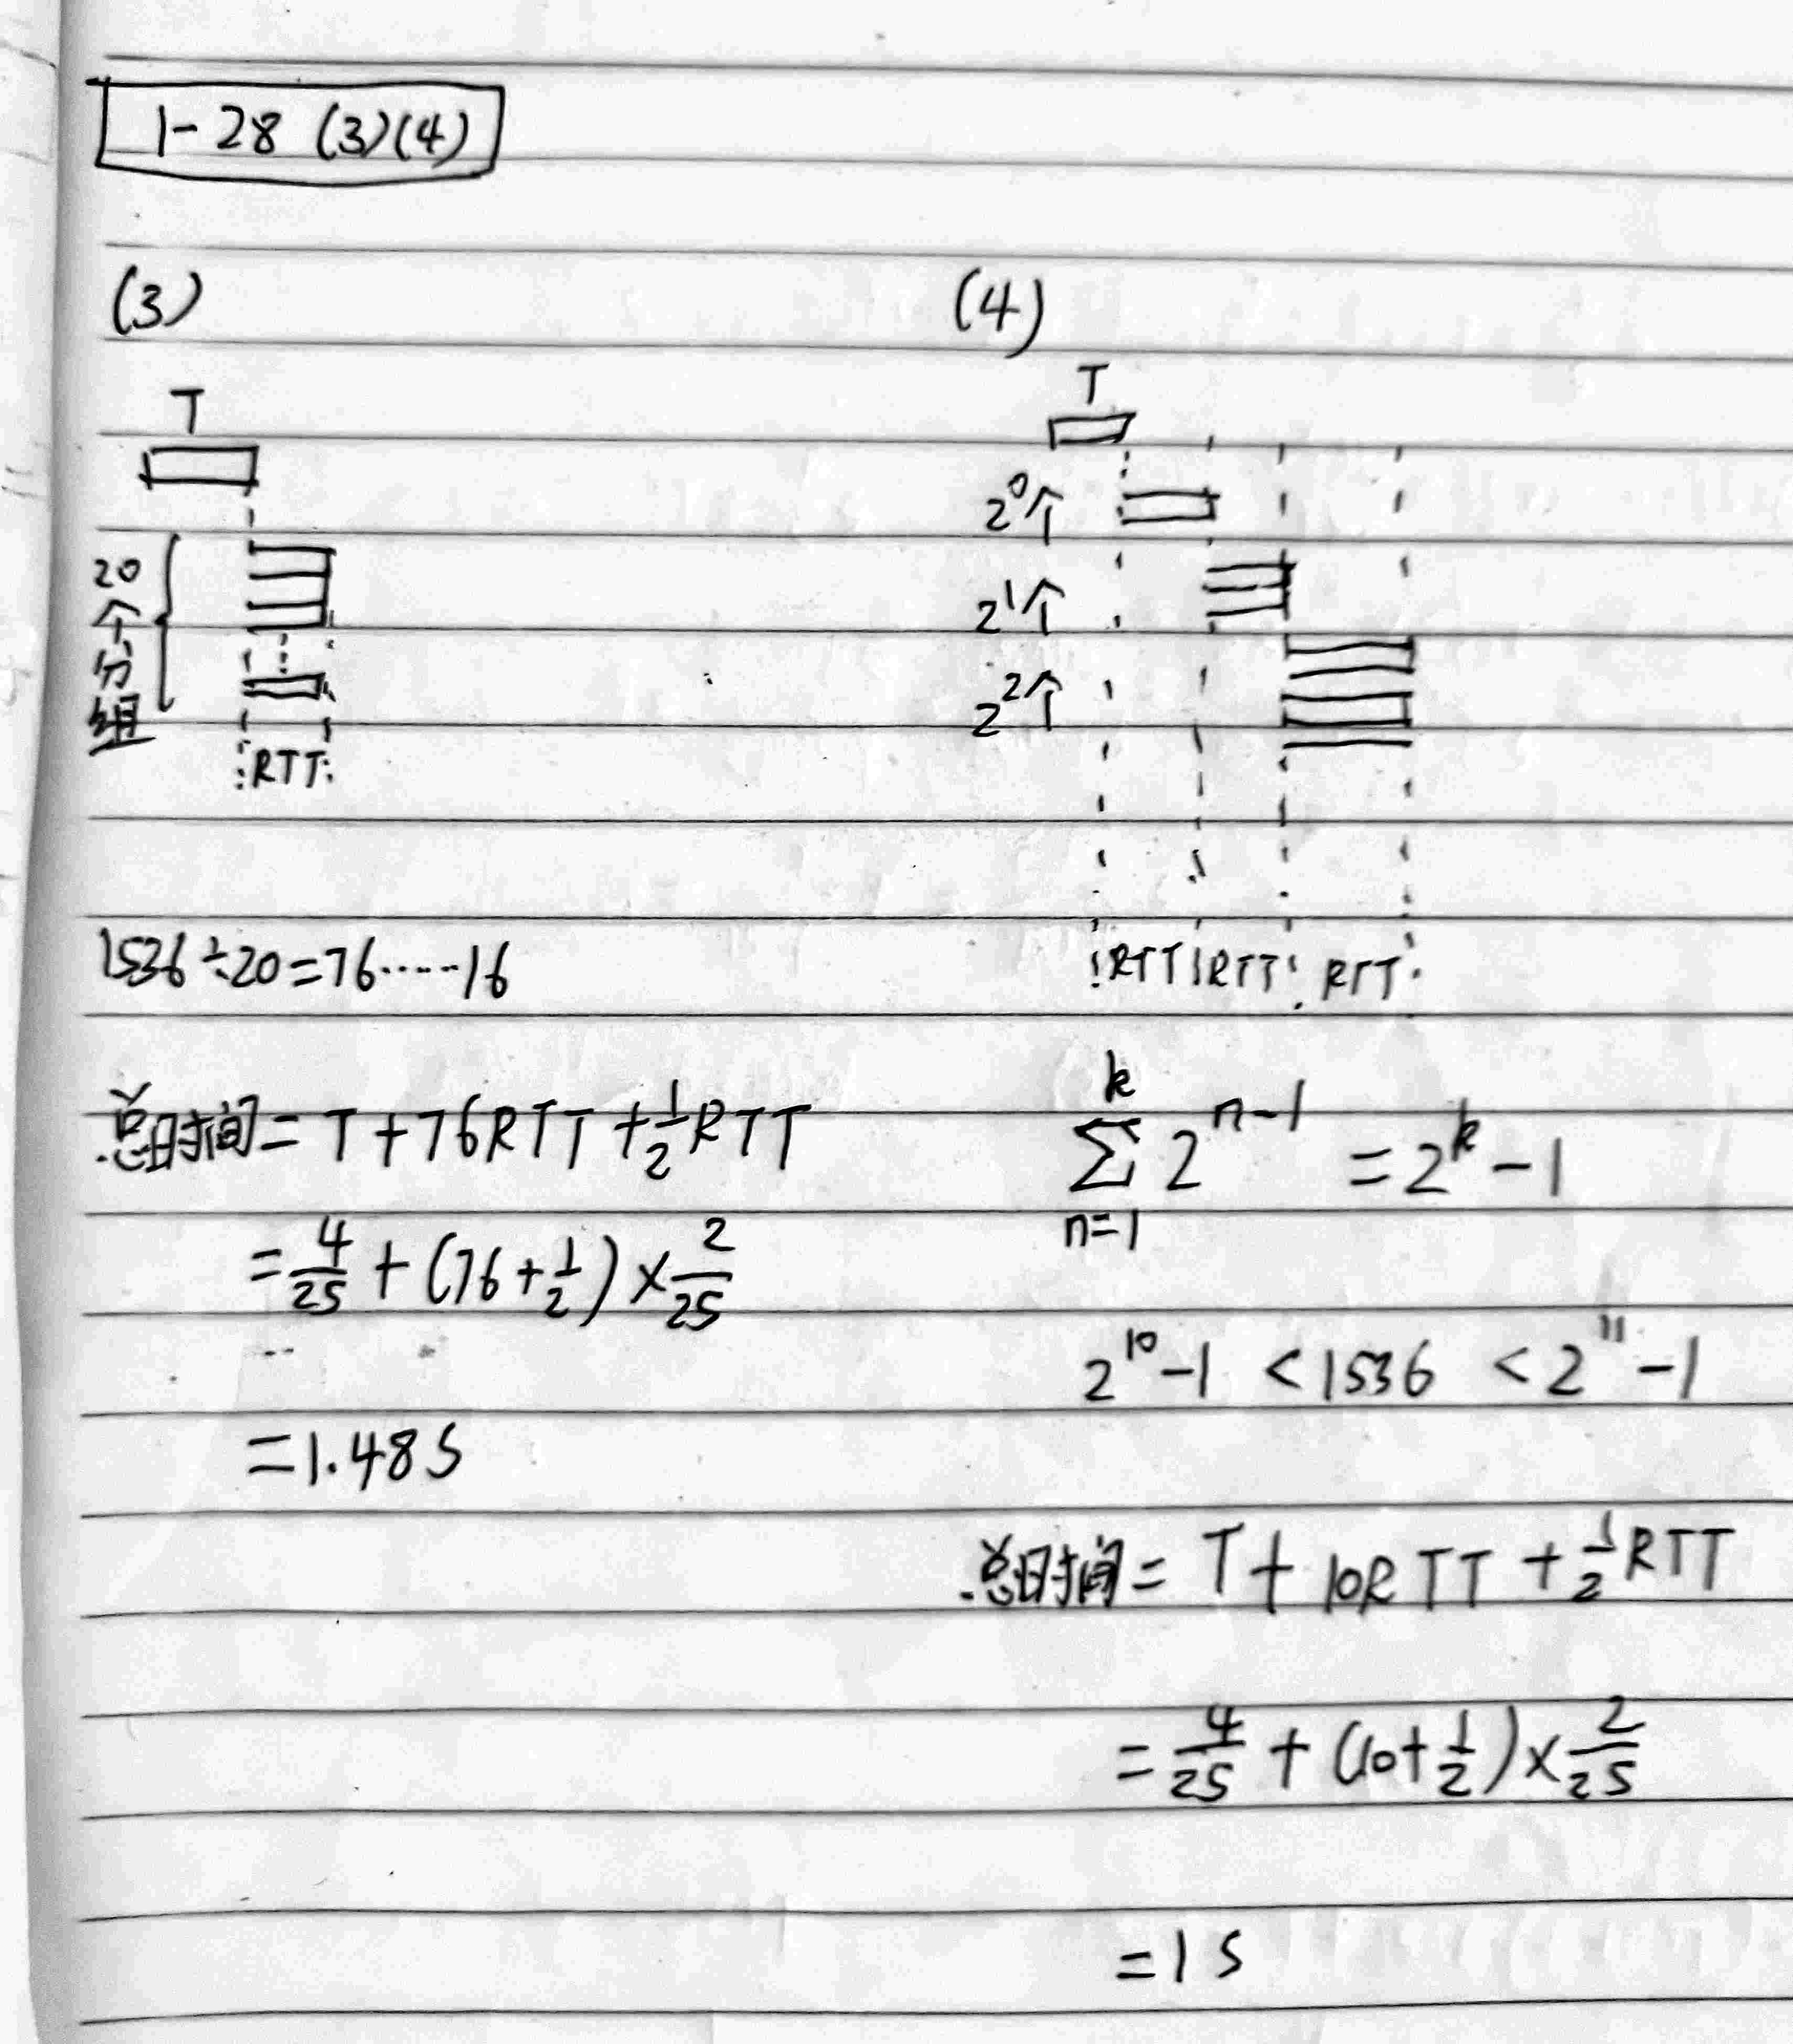 1-28 (3)(4)
(3)
T
20个分组
RTT
1536÷20=76……16
总时间= T+76RTT+1/2RTT
=4/25+(76+1/2)×2/25
=1.48S
(4)
T
2^0个
2^1个
2^2个
RTT RTT RTT
k
∑ 2^(n-1) = 2^k - 1
n=1
2^10-1 < 1536 < 2^11-1
总时间= T+10RTT+1/2RTT
=4/25+(10+1/2)×2/25
=1S